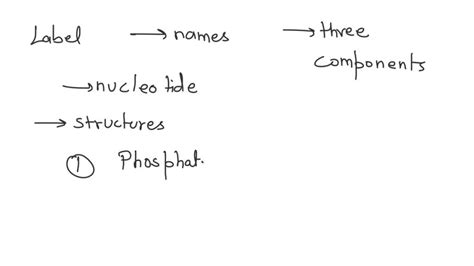 Label → names → three
components
→ nucleotide
→ structures
① Phosphat.